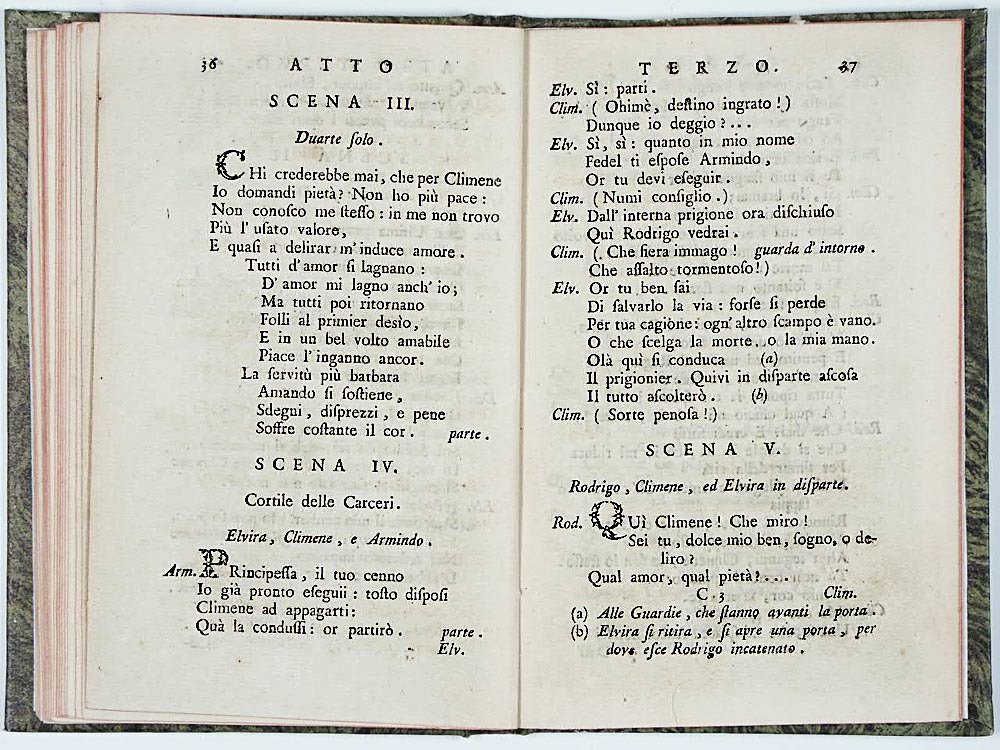 36 ATTO
SCENA III.
Duarte ſolo.
CHi crederebbe mai, che per Climene
Io domandi pietà? Non ho più pace:
Non conoſco me ſteſſo: in me non trovo
Più l' uſato valore,
E quaſi a delirar m'induce amore.
Tutti d'amor ſi lagnano:
D' amor mi lagno anch' io;
Ma tutti poi ritornano
Folli al primier desìo,
E in un bel volto amabile
Piace l'inganno ancor.
La ſervitù più barbara
Amando ſi ſoſtiene,
Sdegni, diſprezzi, e pene
Soffre coſtante il cor. parte.
SCENA IV.
Cortile delle Carceri.
Elvira, Climene, e Armindo.
Arm. PRincipeſſa, il tuo cenno
Io già pronto eſeguii: toſto diſpoſi
Climene ad appagarti:
Quà la conduſſi: or partirò. parte.
Elv.
TERZO. 37
Elv. Sì: parti.
Clim. (Ohimè, deſtino ingrato!)
Dunque io deggio?...
Elv. Sì, sì: quanto in mio nome
Fedel ti eſpoſe Armindo,
Or tu devi eſeguir.
Clim. (Numi conſiglio.)
Elv. Dall' interna prigione ora diſchiuſo
Quì Rodrigo vedrai.
Clim. (Che fiera immago! guarda d' intorno.
Che aſſalto tormentoſo!)
Elv. Or tu ben ſai
Di ſalvarlo la via: forſe ſi perde
Per tua cagione: ogn' altro ſcampo è vano.
O che ſcelga la morte, o la mia mano.
Olà quì ſi conduca (a)
Il prigionier. Quivi in diſparte aſcoſa
Il tutto aſcolterò. (b)
Clim. (Sorte penoſa!)
SCENA V.
Rodrigo, Climene, ed Elvira in diſparte.
Rod. QUì Climene! Che miro!
Sei tu, dolce mio ben, ſogno, o de-
liro?
Qual amor, qual pietà?....
C 3 Clim.
(a) Alle Guardie, che ſtanno avanti la porta.
(b) Elvira ſi ritira, e ſi apre una porta, per
dove eſce Rodrigo incatenato.